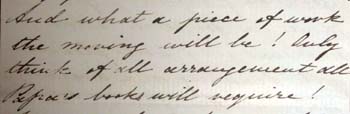 And what a piece of work
the moving will be! Only
think of all arrangement all
Papa's books will require!